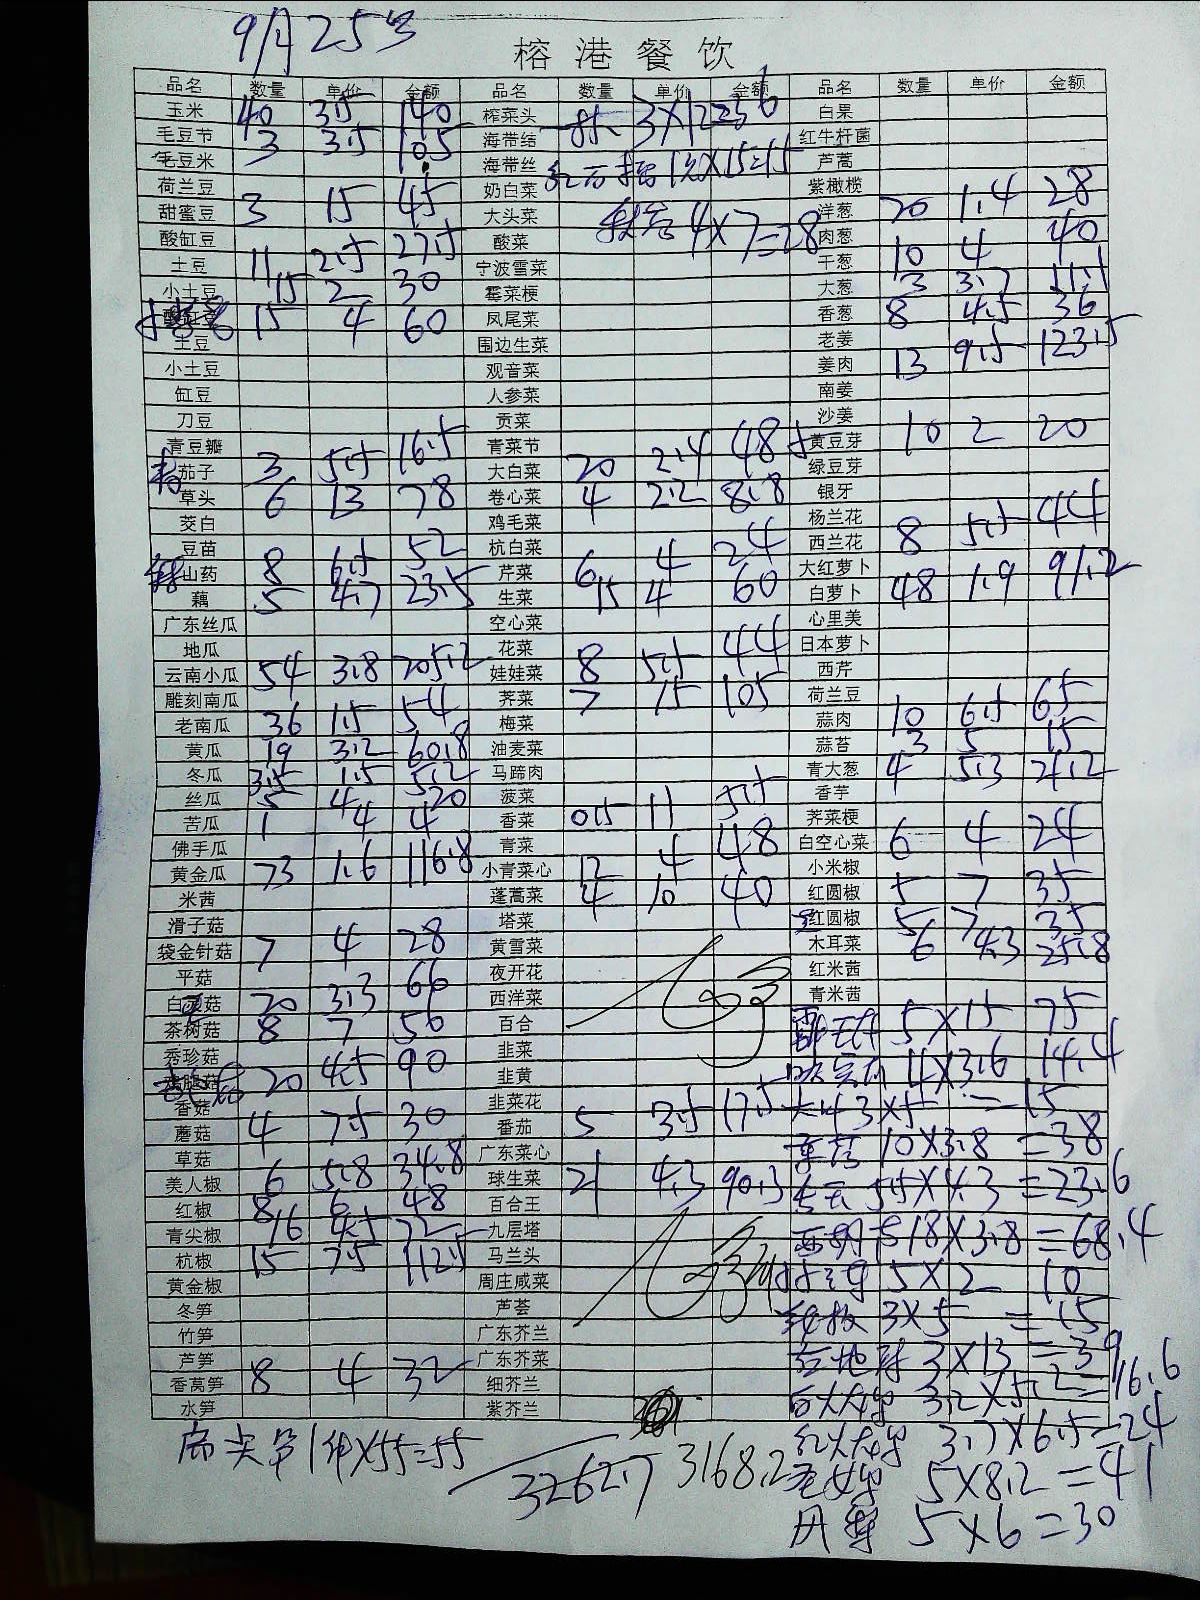 9月25号
榕港餐饮
品名 数量 单价 金额 品名 数量 单价 金额 品名 数量 单价 金额
玉米 40 3.5 140 榨菜头 3×12=36 白果
毛豆节 3 3.5 10.5 海带结 红牛杆菌
毛豆米 海带丝 ×15=15 芦蒿
荷兰豆 奶白菜 紫橄榄
甜蜜豆 3 15 45 大头菜 4×7=28 洋葱 20 1.4 28
酸缸豆 酸菜 肉葱
土豆 11 2.5 27.5 宁波雪菜 干葱 10 4 40
小土豆 15 2 30 霉菜梗 大葱 3 3.7 11.1
酸缸豆 15 4 60 凤尾菜 香葱 8 4.5 36
土豆 围边生菜 老姜
小土豆 观音菜 姜肉 13 9.5 123.5
缸豆 人参菜 南姜
刀豆 贡菜 沙姜
青豆瓣 青菜节 黄豆芽 10 2 20
茄子 3 5.5 16.5 大白菜 20 2.4 48 绿豆芽
草头 6 13 78 卷心菜 4 2.2 8.8 银牙
茭白 鸡毛菜 杨兰花
豆苗 杭白菜 西兰花 8 5.5 44
山药 8 6.5 52 芹菜 6 4 24 大红萝卜
藕 5 4.7 23.5 生菜 15 4 60 白萝卜 48 1.9 91.2
广东丝瓜 空心菜 心里美
地瓜 花菜 日本萝卜
云南小瓜 54 3.8 205.2 娃娃菜 8 5.5 44 西芹
雕刻南瓜 荠菜 7 15 105 荷兰豆
老南瓜 36 1.5 54 梅菜 蒜肉 10 6.5 65
黄瓜 19 3.2 60.8 油麦菜 蒜苔 3 5 15
冬瓜 3.5 1.5 5.2 马蹄肉 青大葱 4 5.3 21.2
丝瓜 5 4 20 菠菜 香芋
苦瓜 1 4 4 香菜 0.5 11 5.5 荠菜梗
佛手瓜 青菜 白空心菜 6 4 24
黄金瓜 73 1.6 116.8 小青菜心 12 4 48 小米椒
米茜 蓬蒿菜 4 10 40 红圆椒 5 7 35
滑子菇 塔菜 红圆椒 5 7 35
袋金针菇 7 4 28 黄雪菜 木耳菜 6 4.3 25.8
平菇 夜开花 红米茜
白灵菇 20 3.3 66 西洋菜 青米茜
茶树菇 8 7 56 百合 5×15 75
秀珍菇 韭菜 4×3.6 14.4
鸡腿菇 20 4.5 90 韭黄 3×5 =15
香菇 韭菜花 10×3.8 =38
蘑菇 4 7.5 30 番茄 5 3.5 17.5
草菇 广东菜心 5.5×4.3 =23.6
美人椒 6 5.8 34.8 球生菜 21 4.3 90.3
红椒 8 6 48 百合王
青尖椒 16 4.5 72 九层塔 18×3.8=68.4
杭椒 15 7.5 112.5 马兰头 5×2 10
黄金椒 周庄咸菜
冬笋 芦荟 3×5 =15
竹笋 广东芥兰
芦笋 广东芥菜 红地球 3×13 =39
香莴笋 8 4 32 细芥兰 3.2×5.2=16.6
水笋 紫芥兰
红火龙果 3.7×6.5=24
5×8.2=41
5×6=30
3262.7 3168.2